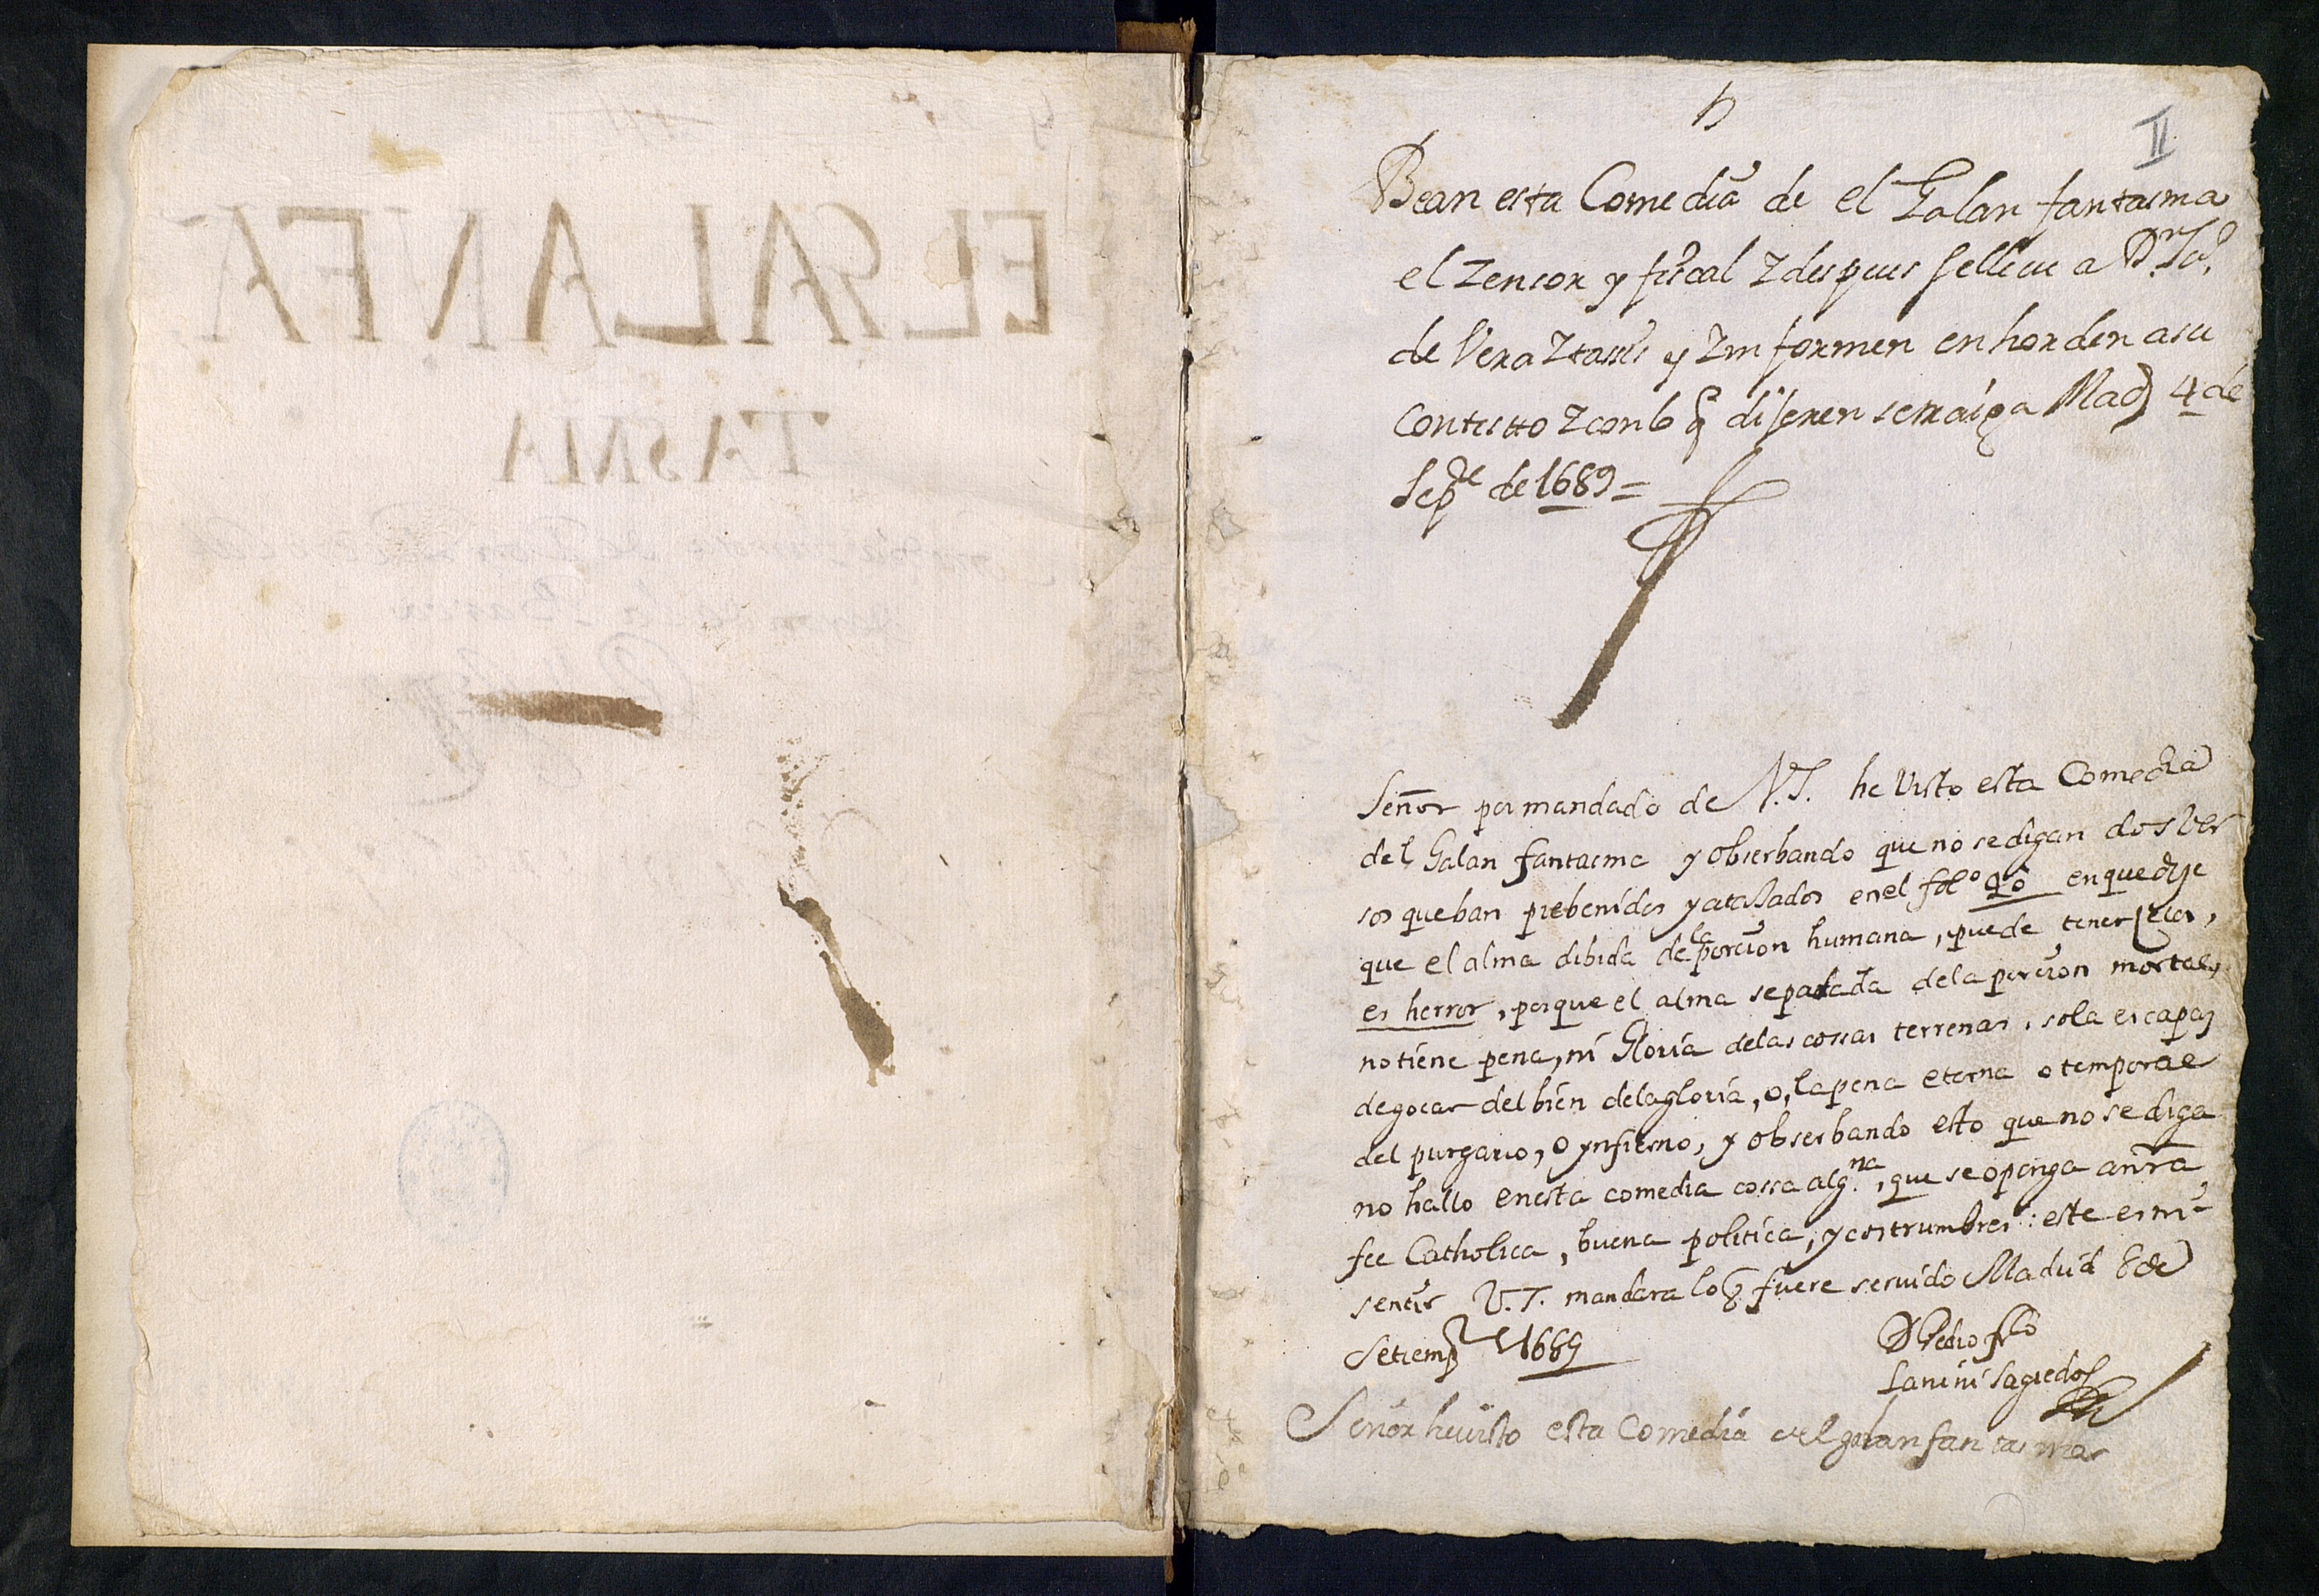 EL GALAN FA
TASMA
II
Bean esta Comedia de el Galan fantasma
el Zensor y fiscal Y despues se lleue a Dn. Ju.º
de Vera Ytassis y Ynformen en horden a su
Contestto Y con lo q dijeren se traiga Mad 4 de
Sepe de 1689 =
Señor por mandado de V.S. he Visto esta Comedia
del Galan fantasma y obserbando que no se digan dos ver
sos que ban prebenidos y atajados en el folº 40 en que dije
que el alma dibida de la porcion humana, puede tener zelos,
es herror, porque el alma separada de la porcion mortal,
no tiene pena, ni Gloria de las cossas terrenas, sola es capaz
de goçar del bien de la gloria, o, la pena eterna o temporal
del purgario, o ynfierno, y obserbando esto que no se diga
no hallo en esta comedia cossa alg.na, que se oponga a nrã
fee Catholica, buena politica, y costrumbres: este es mi
sentir V.S. mandara lo q fuere seruido Madrid 8 de
Setiemb 1689
D Pedro frco
Lanini Sagredo
Señor he uisto esta Comedia del galan fantasma